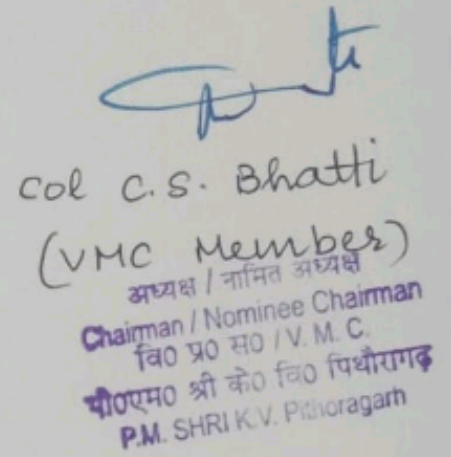 Col C.S. Bhatti
(VMC Member)
अध्यक्ष / नामित अध्यक्ष
Chairman / Nominee Chairman
वि0 प्र0 स0 / V. M. C.
पी0एम0 श्री के0 वि0 पिथौरागढ़
P.M. SHRI K.V. Pithoragarh